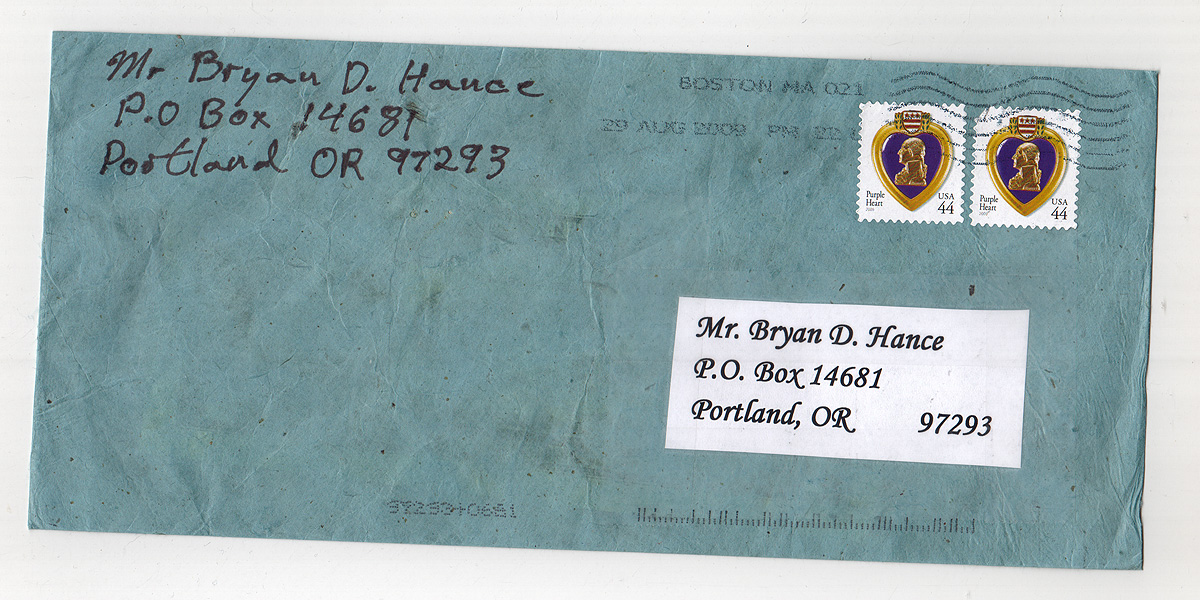 Mr Bryan D. Hance
P.O Box 14681
Portland OR 97293
BOSTON MA 021
29 AUG 2009 PM
Purple
Heart
2009
USA
44
Purple
Heart
USA
44
Mr. Bryan D. Hance
P.O. Box 14681
Portland, OR 97293
97293+0681